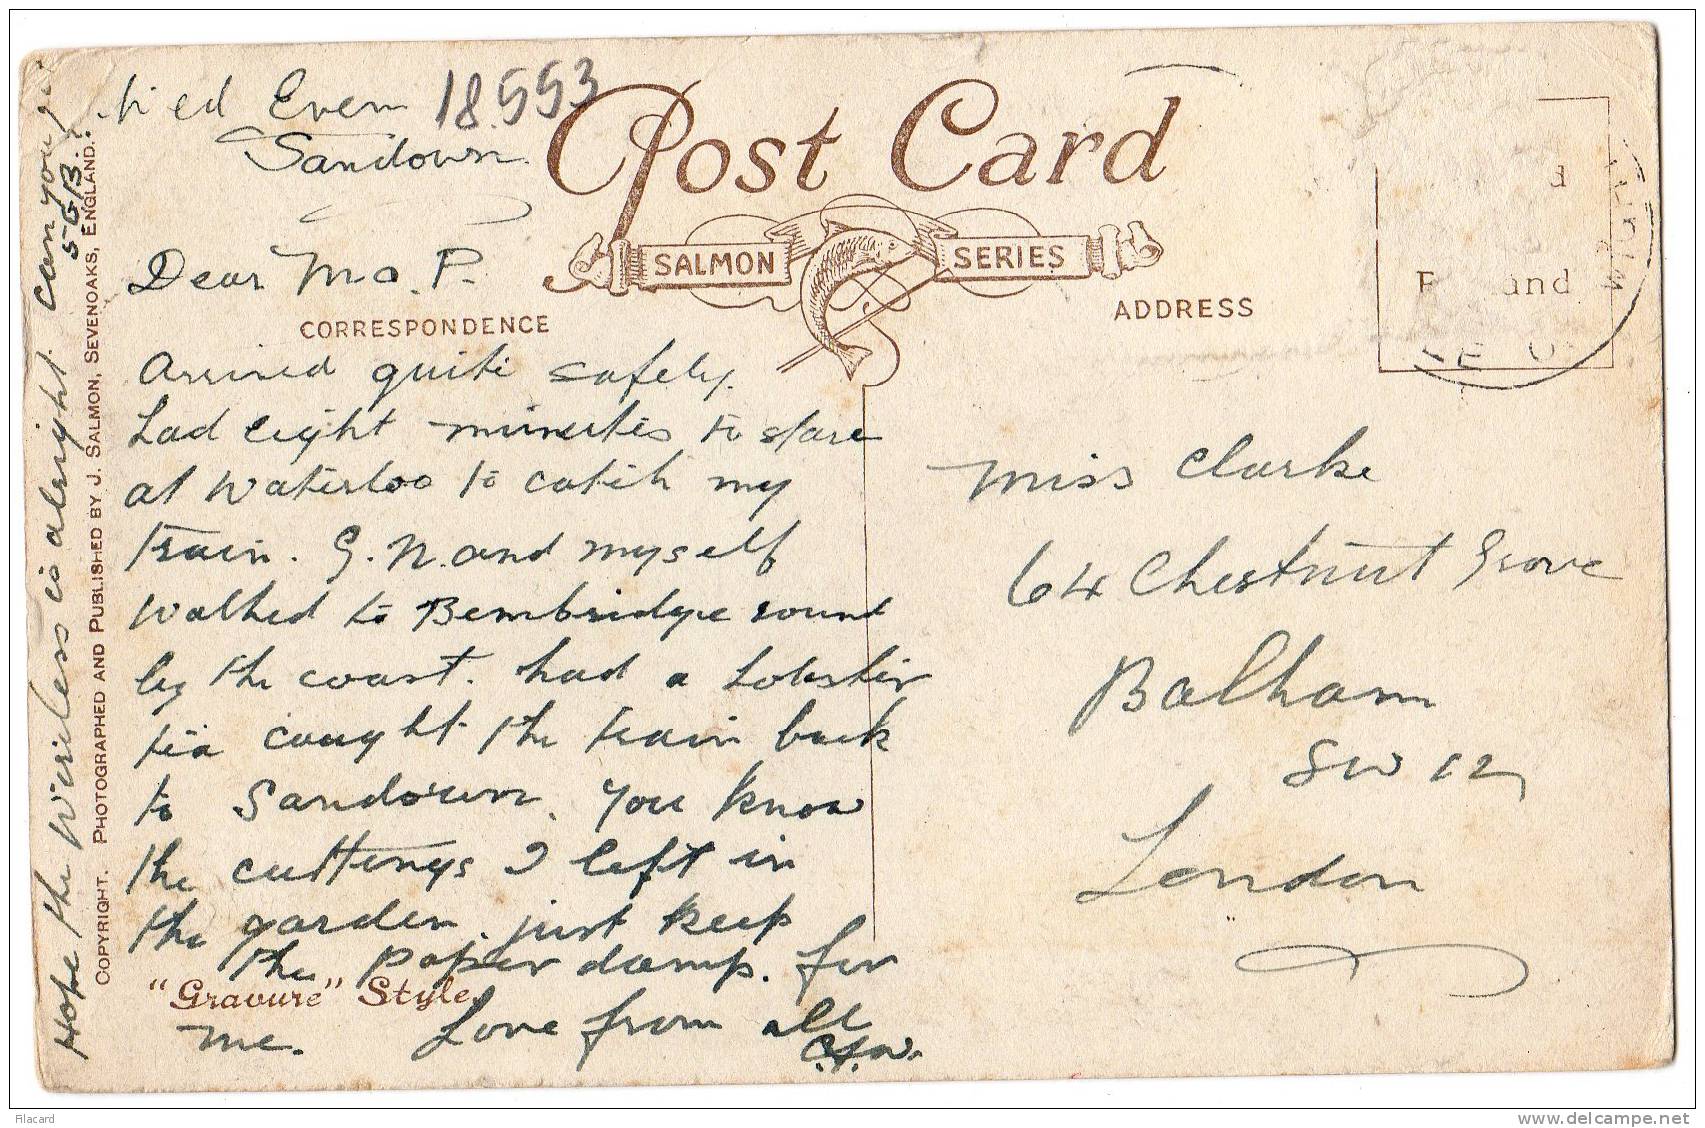 Wed Even 18.553
Sandown.
Post Card
SALMON SERIES
CORRESPONDENCE
ADDRESS
Dear Mo. P.
Arrived quite safely.
had eight minutes to spare
at Waterloo to catch my
train. G.N. and myself
walked to Bembridge round
by the coast. had a Lobster
tea caught the train back
to Sandown. you know
the cuttings I left in
the garden, just keep
the paper damp. for
me. Love from all
"Gravure" Style.
Hope the Wireless is alright. Can you
5 GB.
COPYRIGHT. PHOTOGRAPHED AND PUBLISHED BY J. SALMON, SEVENOAKS, ENGLAND.
Miss Clarke
64 Chestnut Grove
Balham
SW 12
London
filacard
www.delcampe.net